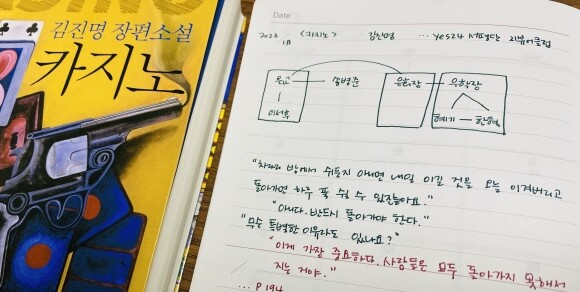 김진명 장편소설
카지노
Date
2024 <카지노> 김진명 ... yes24 서평단 리뷰어클럽
은교 송병준 우학장
이서후
혜기 한혁
"차라리 방에서 쉬든지 아니면 내일 이길 것을 오늘 이겨버리고
돌아가면 하루 푹 쉴 수 있잖아요."
"아니다. 반드시 돌아가야 한다."
"무슨 특별한 이유라도 있나요?"
"이게 가장 중요하다. 사람들은 모두 돌아가지 못해서
지는 거야."
... P 194